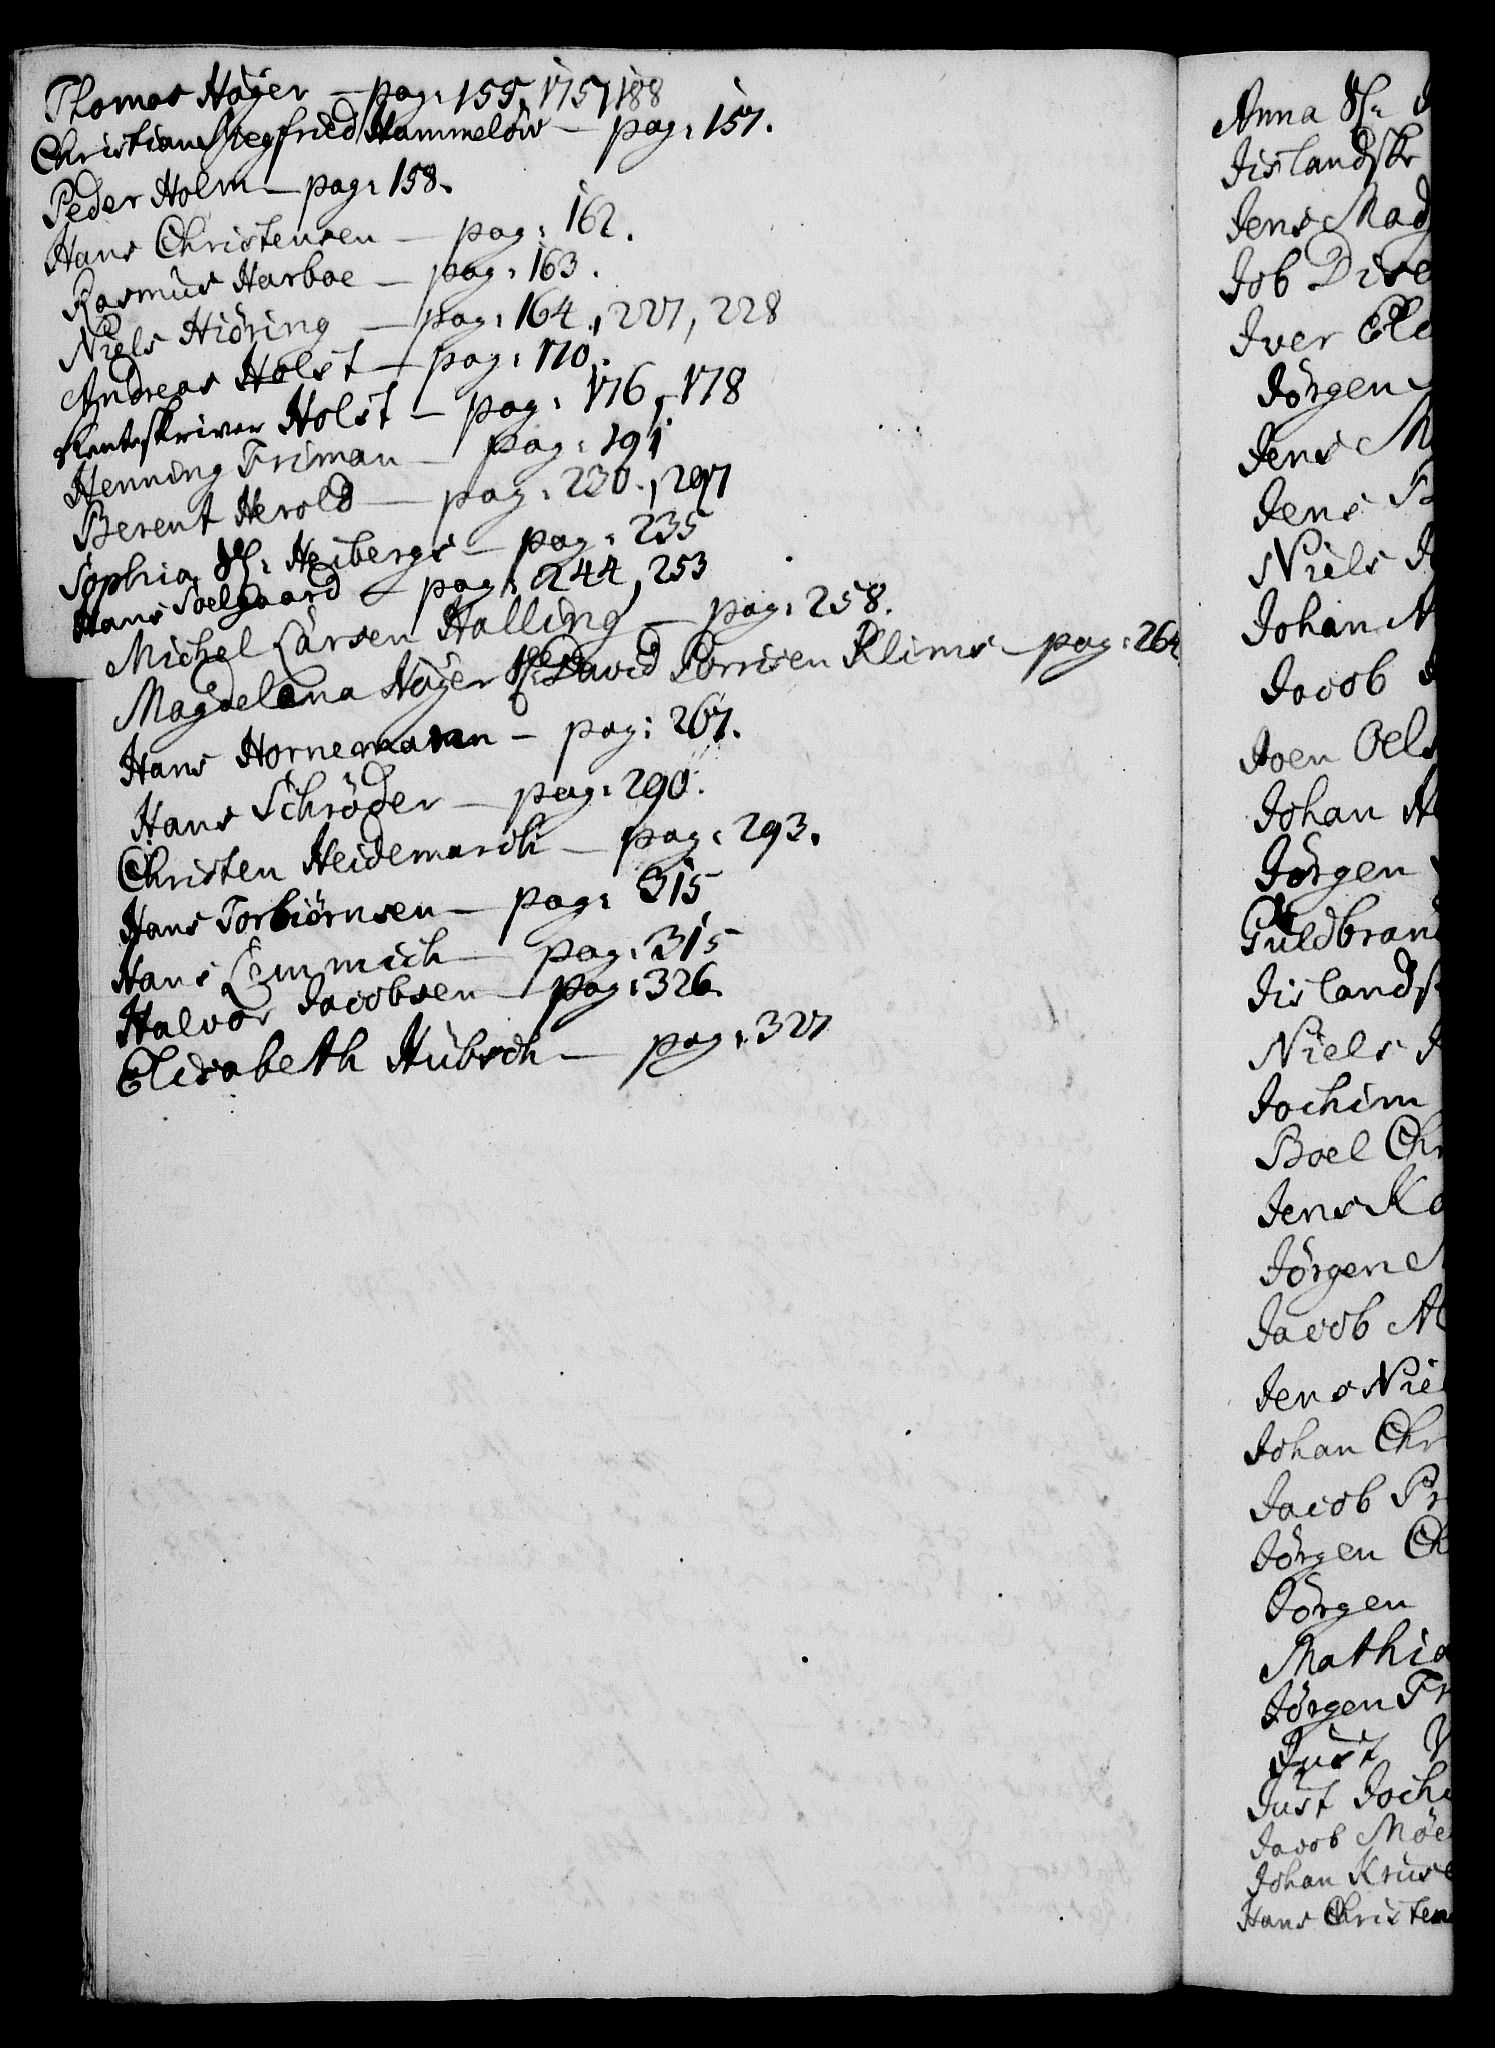 Thomas Höyer — pag: 155, 175, 188
Christian Siegfried Hammelöw — pag: 157.
Peder Holm — pag: 158.
Hans Christensen — pag: 162.
Rasmus Harboe — pag: 163.
Niels Hiöring — pag: 164, 227, 228
Andreas Holst — pag: 170.
Renteskriver Holst — pag: 176, 178
Henning Friman — pag: 191
Berent Herold — pag: 230, 297
Sophia Sl: Heibergs — pag: 235
Hans Soelgaard — pag: 244, 253
Michel Larsen Halling — pag: 258.
Magdelena Höyer Sl: David Porrisen Klims — pag: 264
Hans Hornemann — pag: 267.
Hans Schröder — pag: 290.
Christen Heidemarch — pag: 293.
Hans Torbiörnsen — pag: 315
Hans Lemmich — pag: 315
Halvor Jacobsen — pag: 326.
Elisabeth Hübsch — pag: 327
Anna Sl:
Jislandske
Jens Mad
Job Dire
Iver Ele
Jörgen
Jens M
Jens B
Niels J
Johan
Jacob
Joen Oels
Johan
Jörgen
Guldbrand
Jislands
Niels J
Jochim
Boel Chr
Jens Ka
Jörgen
Jacob
Jens Nie
Johan Chr
Jacob Pr
Jörgen Ch
Jörgen
Mathia
Jörgen Fr
Just
Just Joch
Jacob Möe
Johan Kruse
Hans Christen